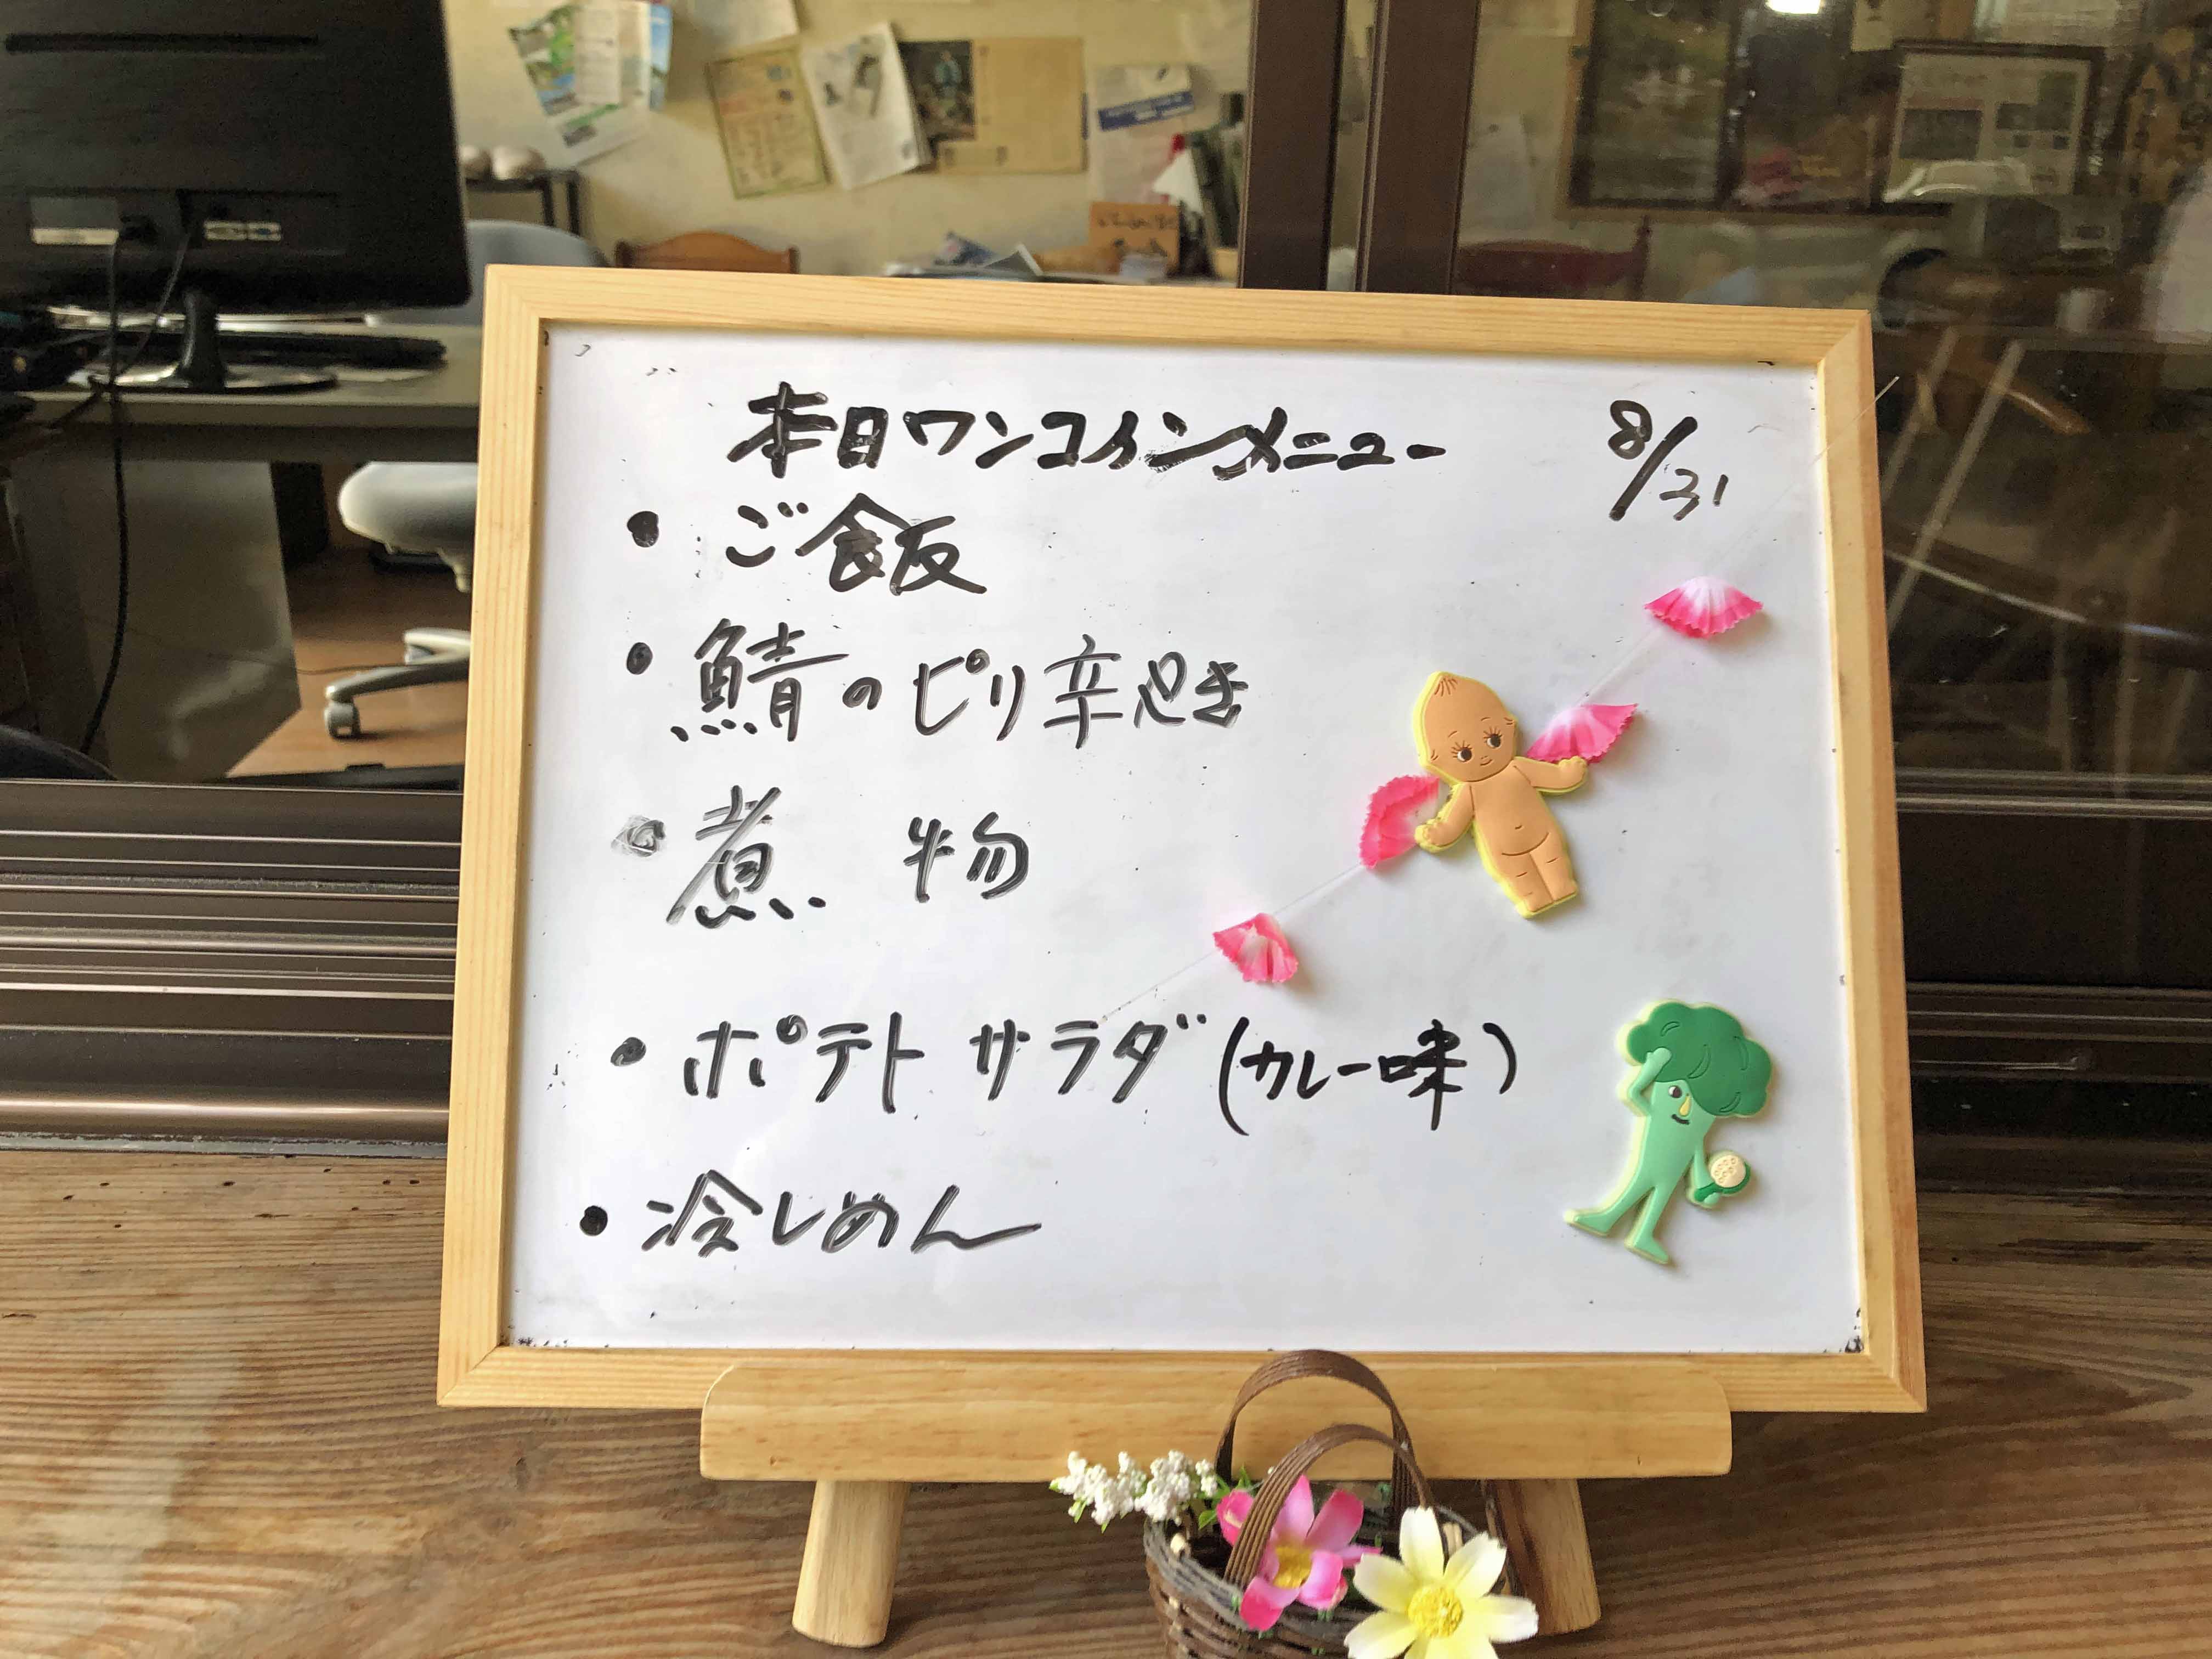 本日ワンコインメニュー 8/31
・ご飯
・鯖のピリ辛焼き
・煮物
・ポテトサラダ(カレー味)
・冷しめん